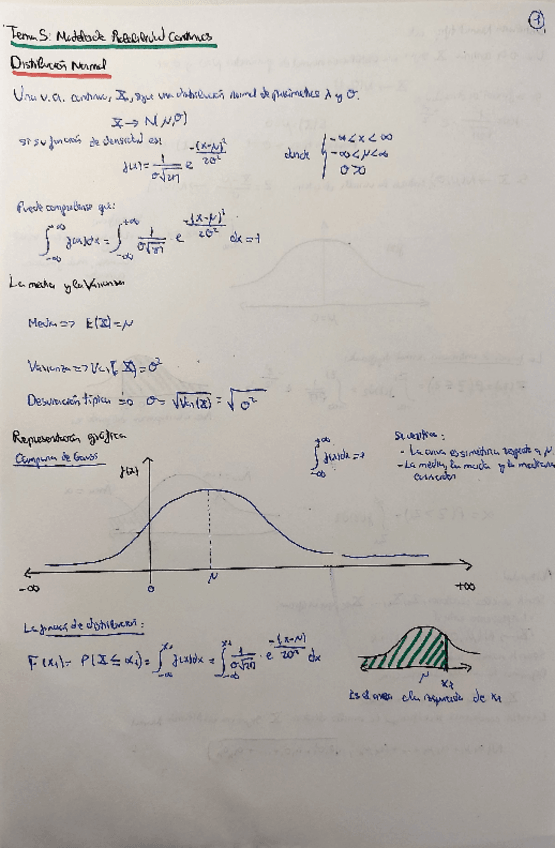 1
Tema 5: Modelos de Probabilidad Continuos
Distribución Normal
Una v.a. continua, X, sigue una distribución normal de parámetros λ y σ.
X → N(μ,σ)
si su función de densidad es:
f(x)= 1/(σ√2π) e^(-(x-μ)²/2σ²)
donde { -∞<x<∞
-∞<μ<∞
σ>0
Puede comprobarse que:
∫_{-∞}^{+∞} f(x)dx = ∫_{-∞}^{+∞} 1/(σ√2π) · e^(-(x-μ)²/2σ²) dx = 1
La media y la Varianza
Media => E(X)=μ
Varianza => Var(X)=σ²
Desviación típica => σ = √Var(X) = √σ²
Representación gráfica
Campana de Gauss
f(x)
∫_{-∞}^{+∞} f(x)dx=1
- La curva es simétrica respecto a μ
- La media, la moda y la mediana
coinciden
-∞ 0 μ +∞
La función de distribución:
F(x₁)= P(X≤x₁)= ∫_{-∞}^{x₁} f(x)dx = ∫_{-∞}^{x₁} 1/(σ√2π) · e^(-(x-μ)/2σ²) dx
μ x₁
Es el área a la izquierda de x₁